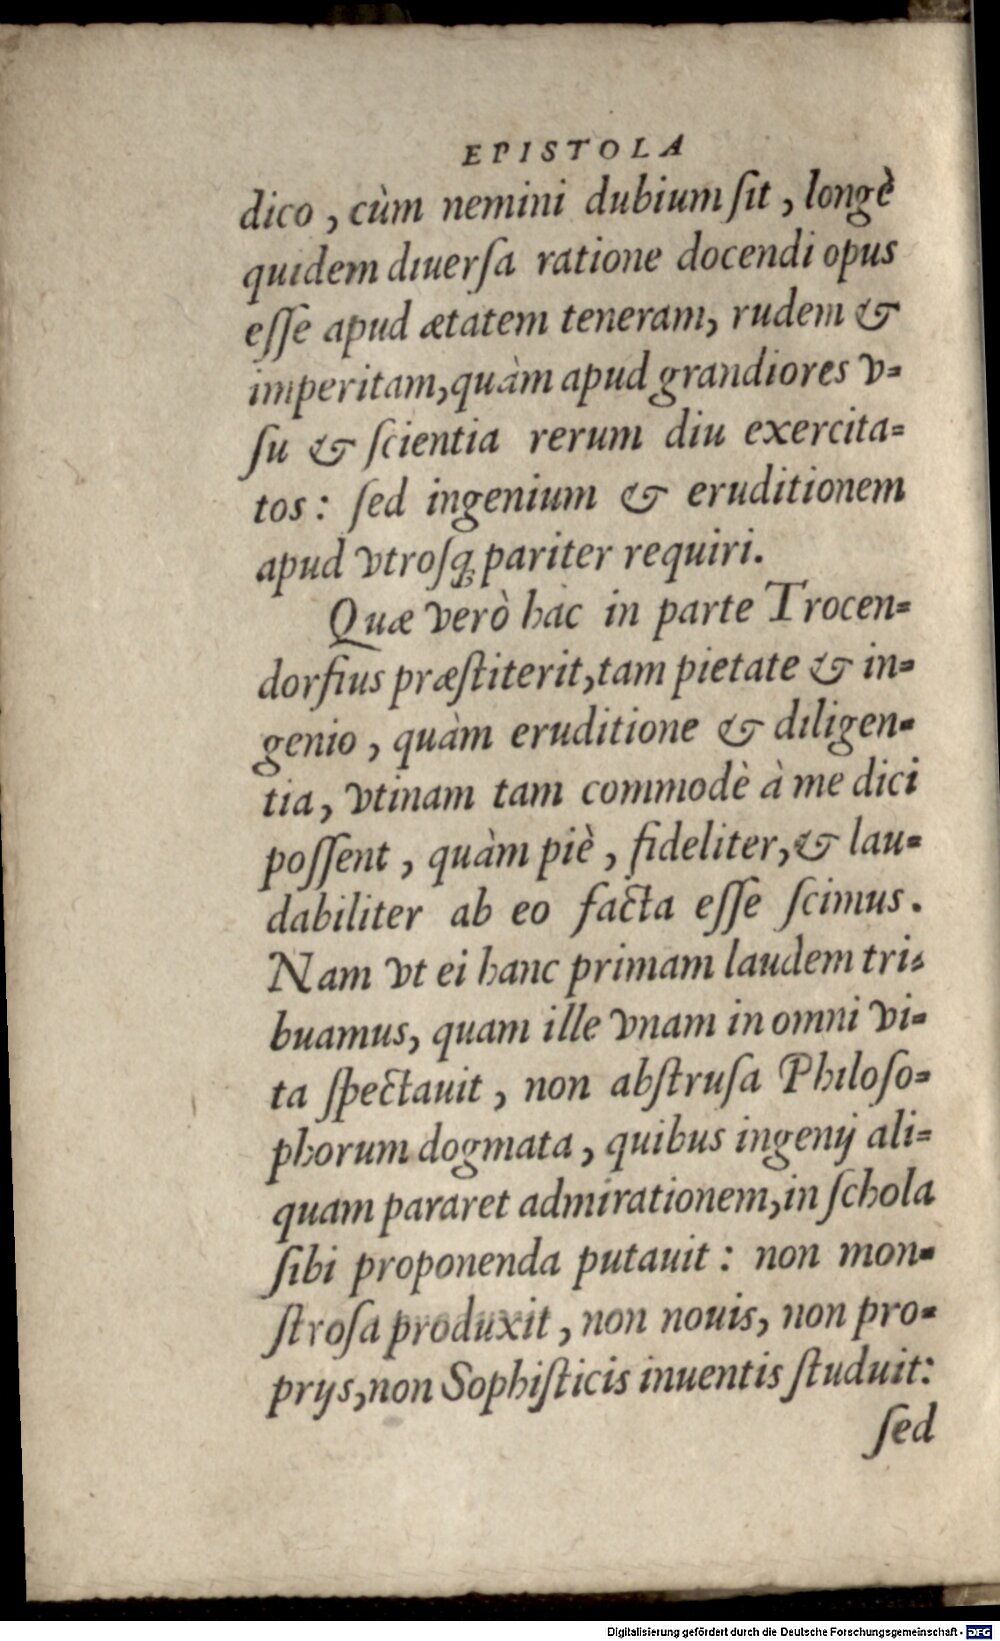 EPISTOLA
dico, cùm nemini dubium ſit, longè
quidem diuerſa ratione docendi opus
eſſe apud ætatem teneram, rudem &
imperitam, quàm apud grandiores v=
ſu & ſcientia rerum diu exercita=
tos: ſed ingenium & eruditionem
apud vtroſq; pariter requiri.
Quæ verò hac in parte Trocen=
dorfius præſtiterit, tam pietate & in=
genio, quàm eruditione & diligen=
tia, vtinam tam commodè à me dici
poſſent, quàm piè, fideliter, & lau=
dabiliter ab eo facta eſſe ſcimus.
Nam vt ei hanc primam laudem tri=
buamus, quam ille vnam in omni vi=
ta ſpectauit, non abſtruſa Philoſo=
phorum dogmata, quibus ingenij ali=
quam pararet admirationem, in ſchola
ſibi proponenda putauit: non mon=
ſtroſa produxit, non nouis, non pro=
prijs, non Sophiſticis inuentis ſtuduit:
ſed
Digitalisierung gefördert durch die Deutsche Forschungsgemeinschaft - DFG